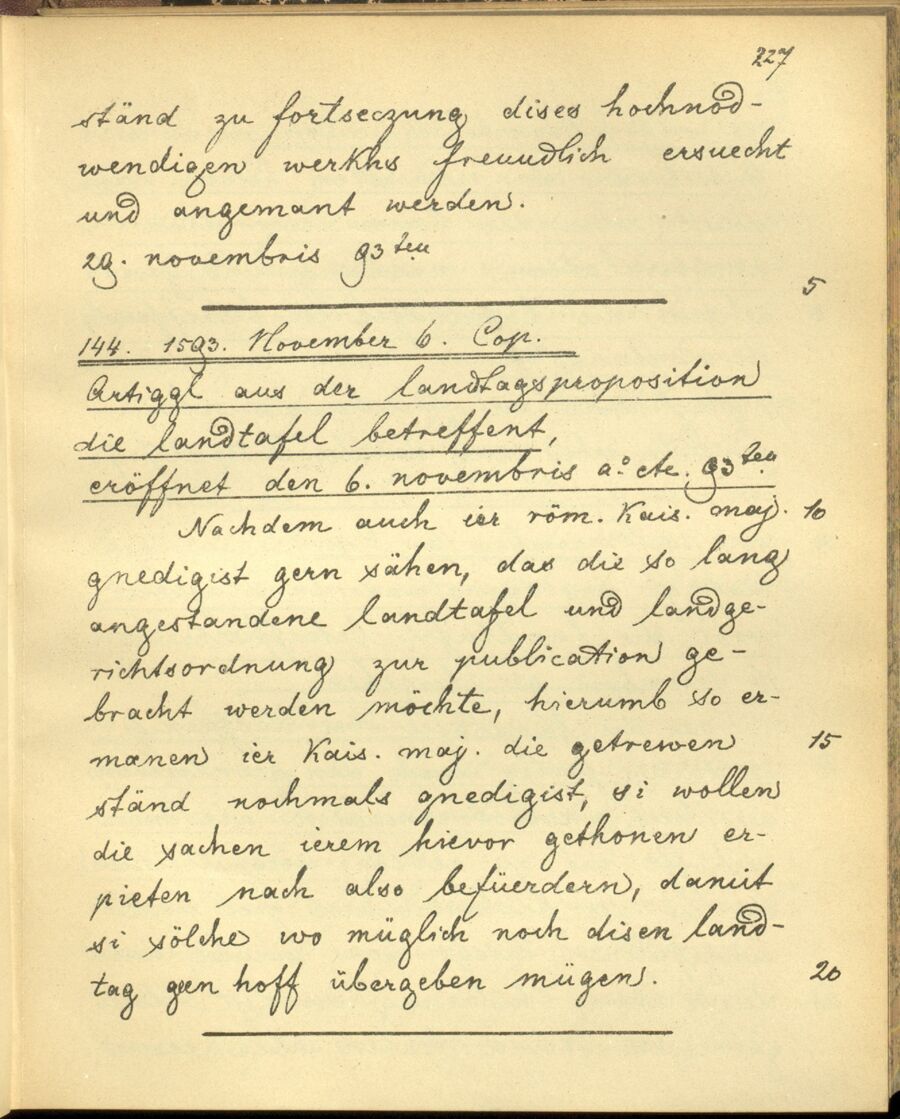 227
ständ zu fortseczung dises hochnod-
wendigen werkhs freundlich ersuecht
und angemant werden.
29. novembris 93ten
5
144. 1593. November 6. Cop.
Artiggl aus der landtagsproposition
die landtafel betreffent,
eröffnet den 6. novembris a.° etc. 93ten
Nachdem auch ier röm. Kais. maj. 10
gnedigist gern sähen, das die so lang
angestandene landtafel und landge-
richtsordnung zur publication ge-
bracht werden möchte, hierumb so er-
manen ier Kais. maj. die getrewen 15
ständ nochmals gnedigist, si wollen
die sachen ierem hievor gethonen er-
pieten nach also befüerdern, damit
si sölche wo müglich noch disen land-
tag gen hoff übergeben mügen. 20